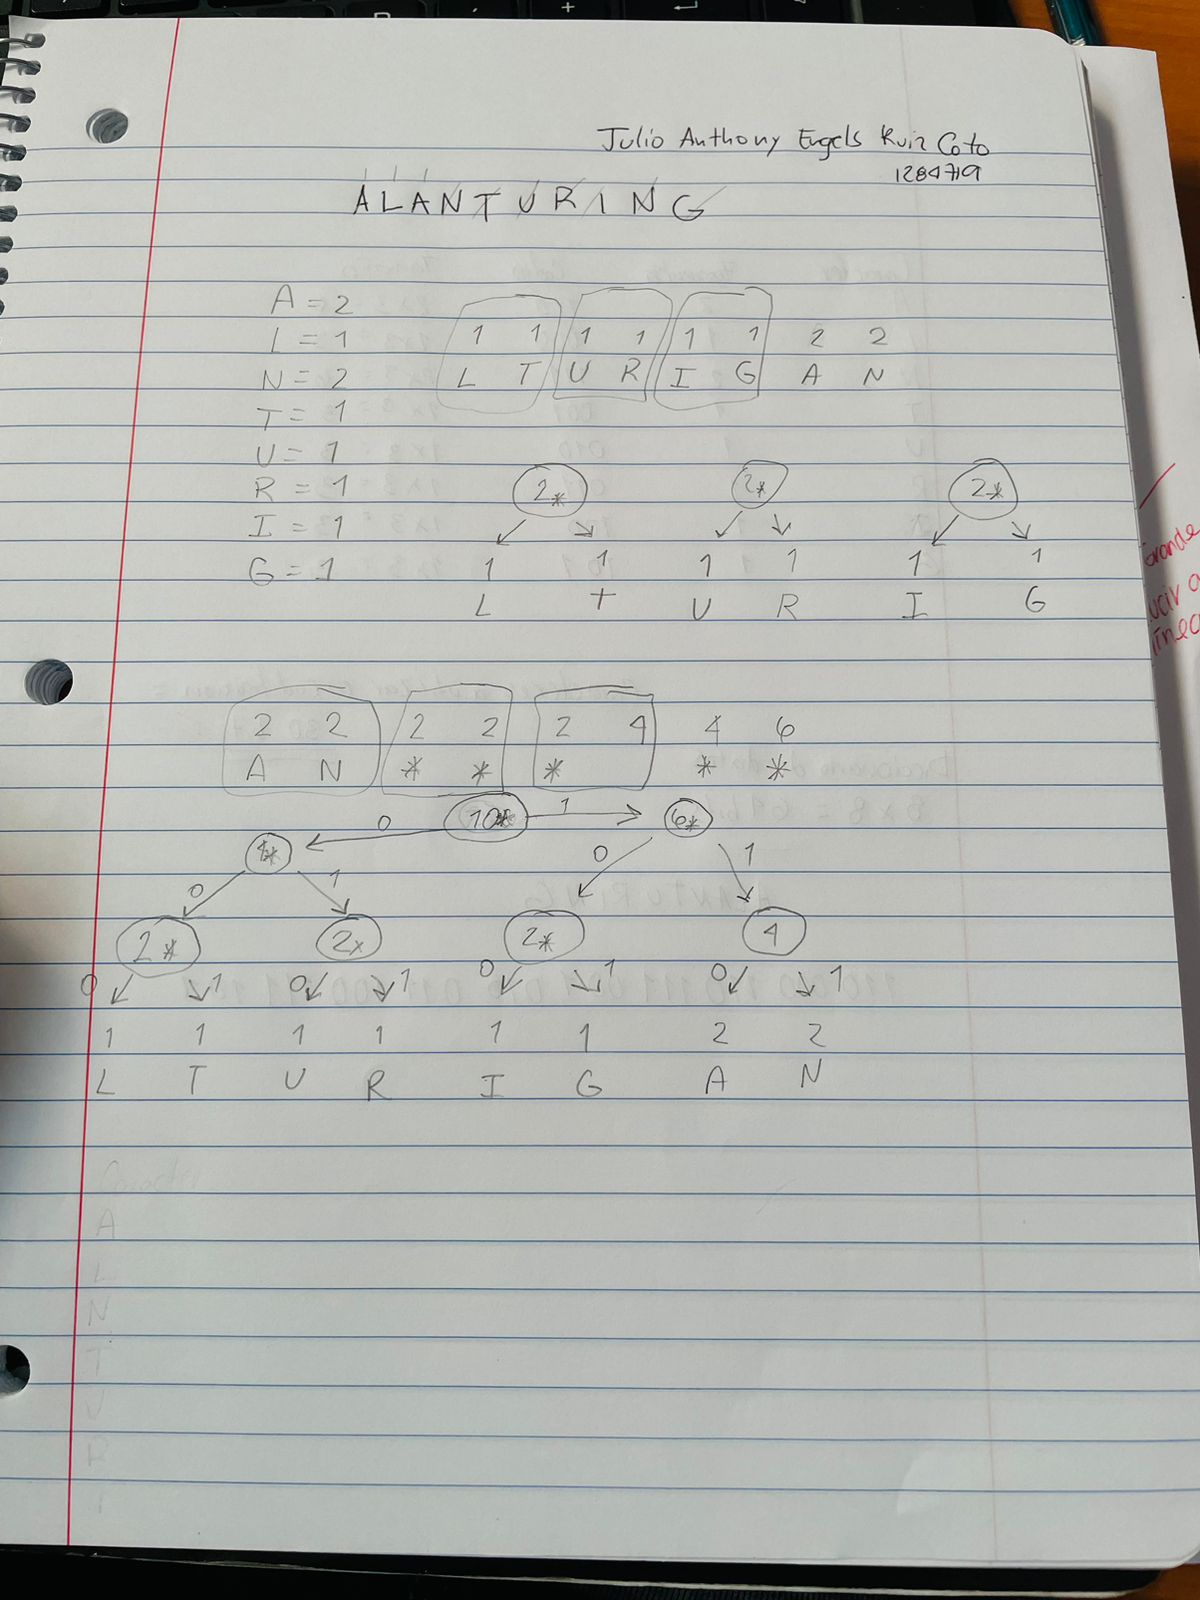 Julio Anthony Engels Ruiz Coto
1284719
ALANTURING
A = 2
L = 1
N = 2
T = 1
U = 1
R = 1
I = 1
G = 1
1 1 1 1 1 1 2 2
L T U R I G A N
2* 2* 2*
1 1 1 1 1 1
L T U R I G
2 2 2 2 2 4 4 6
A N * * * * *
10* 1 6*
0
4* 0 1
0 1
2* 2* 2* 4
0 1 0 1 0 1 0 1
1 1 1 1 1 1 2 2
L T U R I G A N
Grande